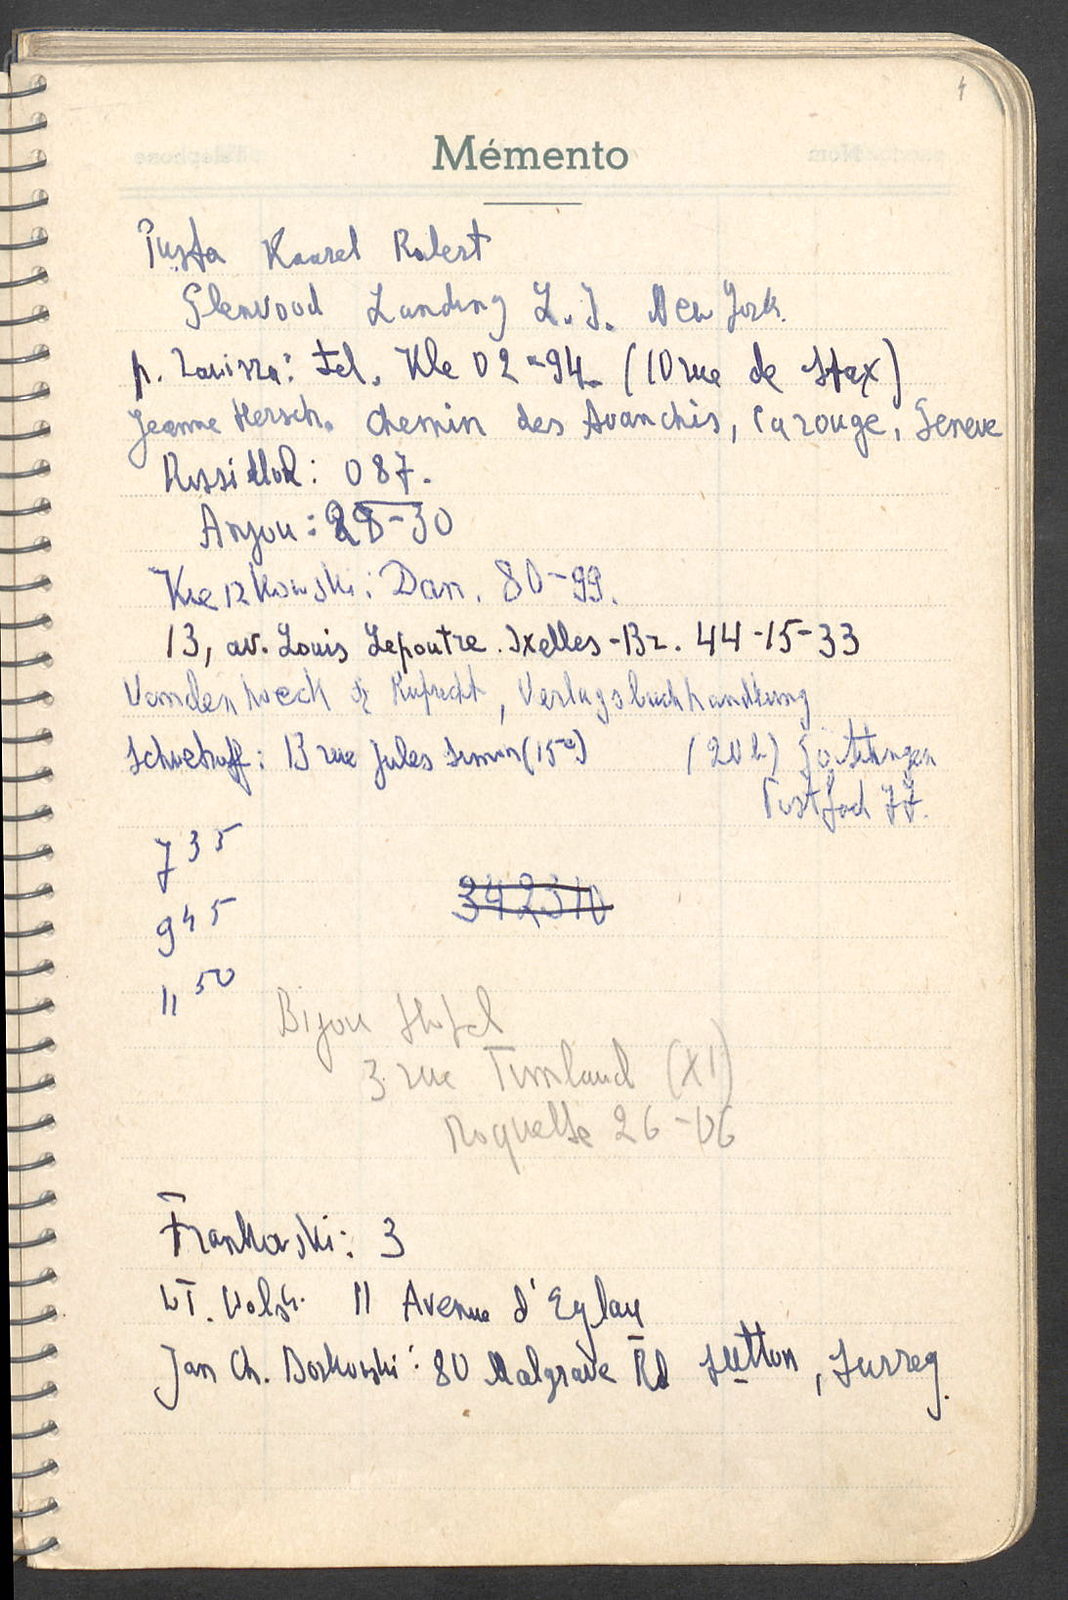 4
Mémento
Pusta Kaarel Robert
Glenwood Landing L.I. New York.
p. Zawisza: tel. Kle 02-94 (10 rue de Sfax)
Jeanne Hersch. Chemin des Avanchis, Carouge, Geneve
087.
Anjou: 28-30
Dan. 80-99.
13, av. Louis Lepoutre. Ixelles-Br. 44-15-33
Vandenhoeck & Ruprecht, Verlagsbuchhandlung
13 rue Jules Simon (15e) (20b) Göttingen
Postfach 77.
735
945
1150
342310
Bijou Hotel
3 rue (XI)
Roquette 26-06
Frankowski: 3
11 Avenue d'Eylau
Jan Ch. Borkowski: 80 Malgrave Rd Sutton, Surrey.